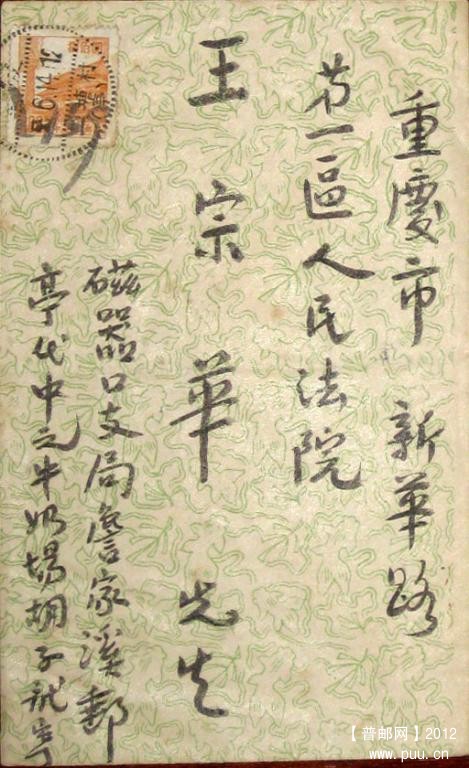 重慶市 新華路
第一區人民法院
王宗華先生
磁器口支局詹家溪郵
亭代中元牛奶場胡子訧寄
【普邮网】2012
www.puu.cn